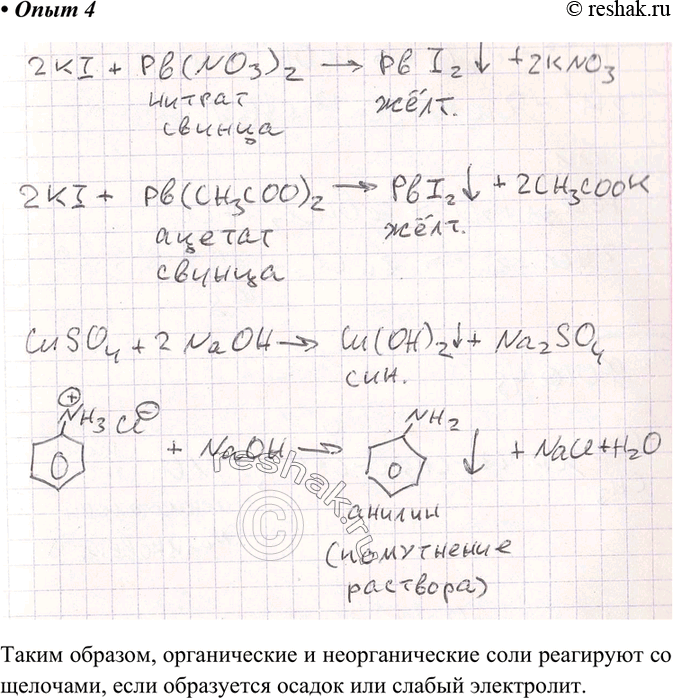 • Опыт 4
© reshak.ru
2KI + Pb(NO3)2 → PbI2↓ + 2KNO3
нитрат жёлт.
свинца
2KI + Pb(CH3COO)2 → PbI2↓ + 2CH3COOK
ацетат жёлт.
свинца
CuSO4 + 2NaOH → Cu(OH)2↓ + Na2SO4
син.
NH3 Cl + NaOH → NH2 ↓ + NaCl + H2O
анилин
(помутнение
раствора)
reshak.ru
©
Таким образом, органические и неорганические соли реагируют со
щелочами, если образуется осадок или слабый электролит.